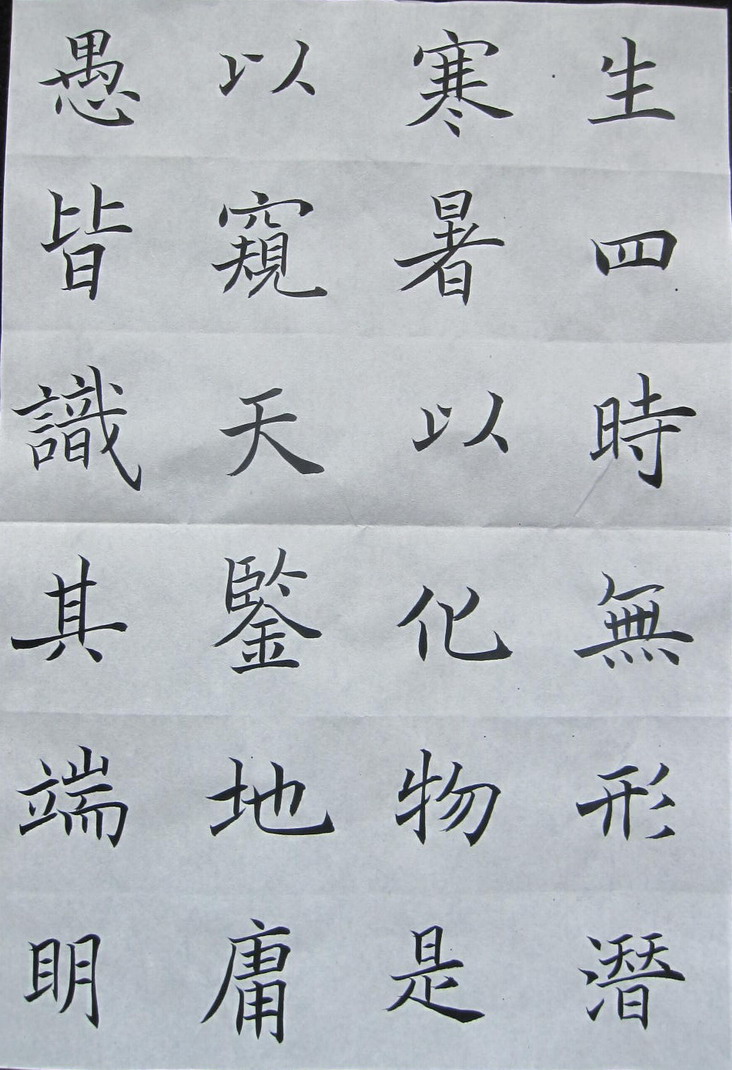 生四時無形潛
寒暑以化物是
以窺天鑒地庸
愚皆識其端明